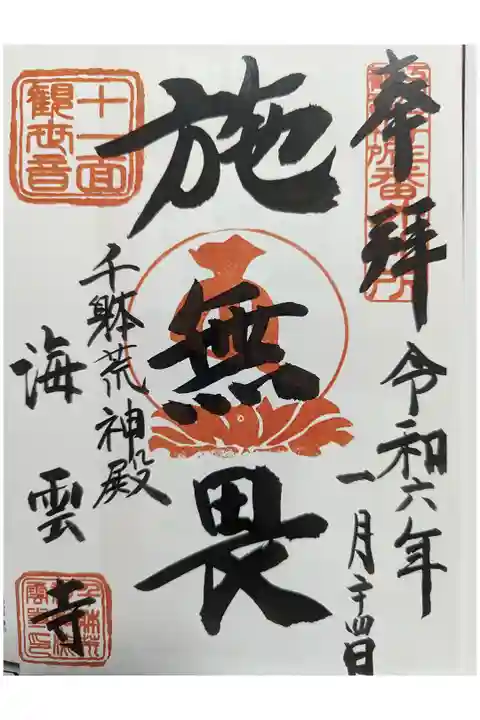 奉拝
令和六年
一月二十四日
施無畏
十一面
観世音
千躰荒神殿
海雲寺